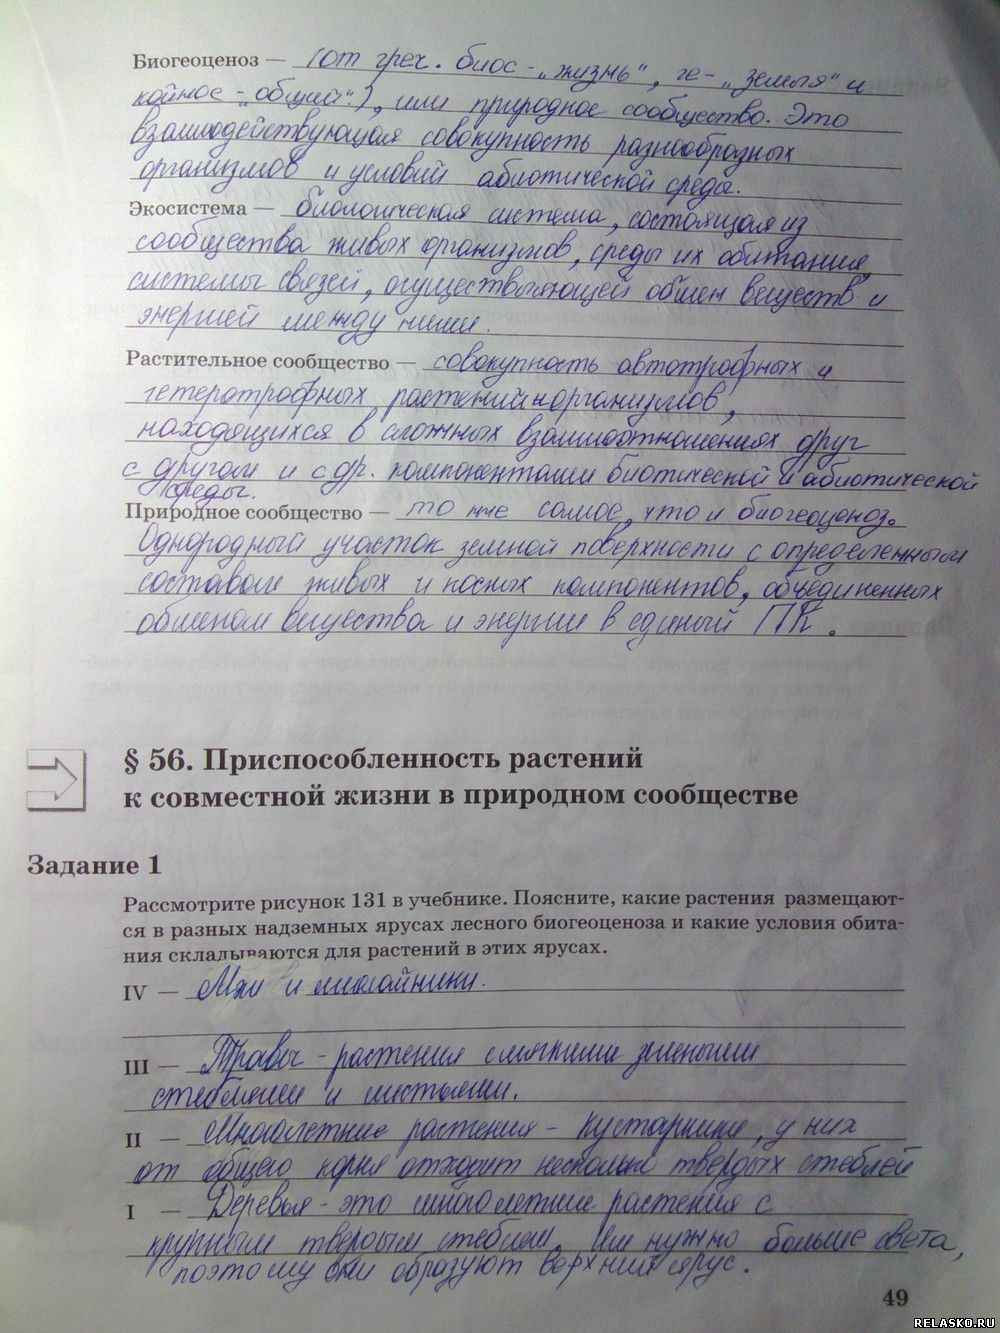 Биогеоценоз — (от греч. биос - „жизнь", ге - „земля" и
койнос - „общий".), или природное сообщество. Это
взаимодействующая совокупность разнообразных
организмов и условий абиотической среды.
Экосистема — биологическая система, состоящая из
сообщества живых организмов, среды их обитания,
системы связей, осуществляющей обмен веществ и
энергией между ними.
Растительное сообщество — совокупность автотрофных и
гетеротрофных растений-организмов,
находящихся в сложных взаимоотношениях друг
с другом и с др. компонентами биотической и абиотической
среды.
Природное сообщество — то же самое, что и биогеоценоз.
Однородный участок земной поверхности с определенным
составом живых и косных компонентов, объединенных
обменом вещества и энергии в единый ПК.
§ 56. Приспособленность растений
к совместной жизни в природном сообществе
Задание 1
Рассмотрите рисунок 131 в учебнике. Поясните, какие растения размещают-
ся в разных надземных ярусах лесного биогеоценоза и какие условия обита-
ния складываются для растений в этих ярусах.
IV — Мхи и лишайники.
III — Травы - растения с мягкими зелеными
стеблями и листьями.
II — Многолетние растения - кустарники, у них
от общего корня отходит несколько твердых стеблей
I — Деревья - это многолетние растения с
крупным твердым стеблем. Им нужно больше света,
поэтому они образуют верхний ярус.
49
RELASKO.RU